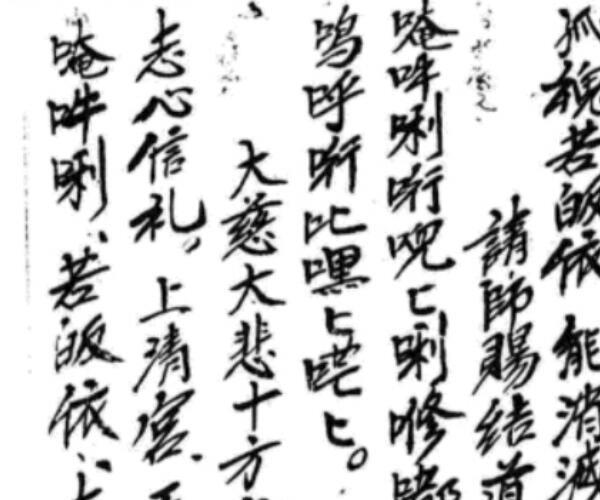 孤魂若皈依能消滅
請師賜結道
唵吽唎哘呪匕唎嘇
嗚呼哘吡嘿匕咤匕。
大慈大悲十方
志心信礼。上清宮
唵吽唎、若皈依